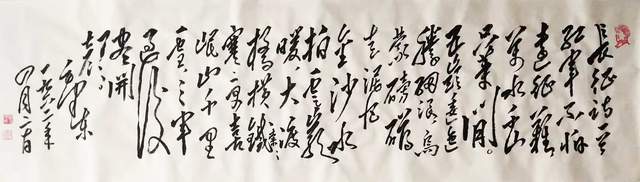 長征詩一首
紅軍不怕
遠征難
萬水千山
只等閑。
五嶺逶迤
騰細浪烏
蒙磅礴
走泥丸
金沙水
拍雲崖
暖大渡
橋橫鐵索
寒更喜
岷山千里
雪三軍
過後
盡開
顏
毛澤東
一九六二年
四月二十日